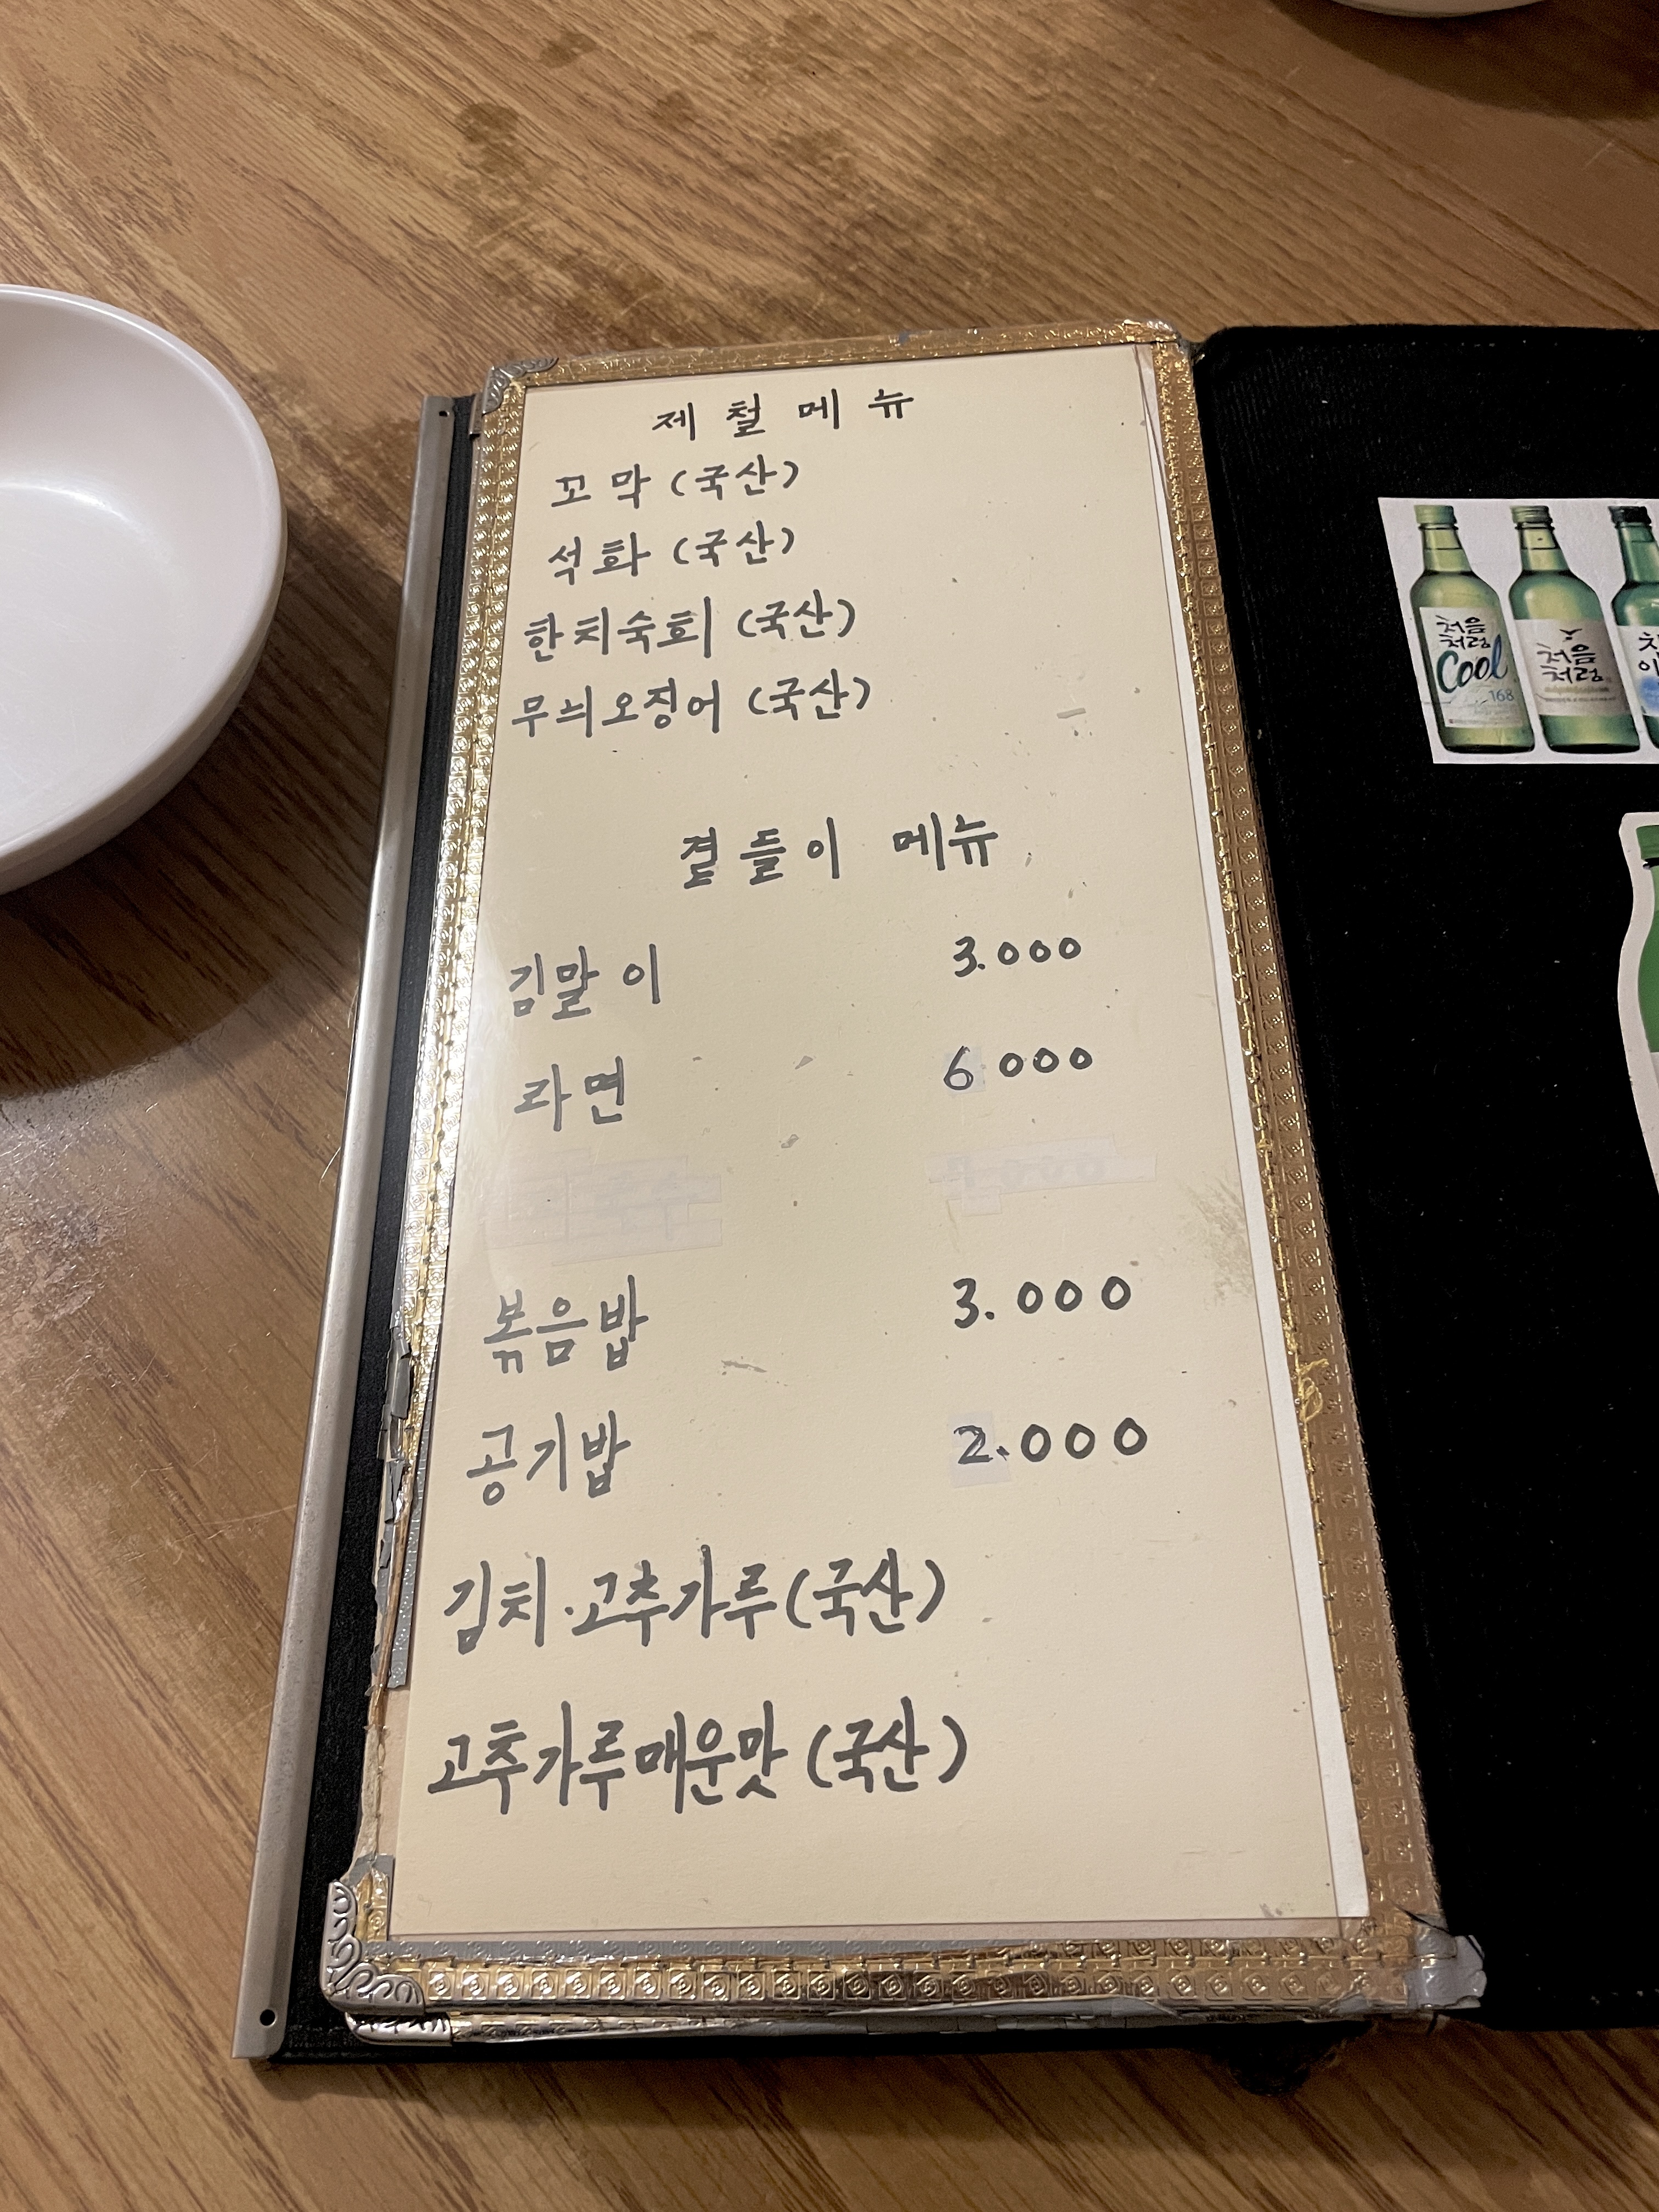 제철메뉴
꼬막(국산)
석화(국산)
한치숙회(국산)
무늬오징어(국산)
곁들이 메뉴
김말이 3.000
라면 6 000
볶음밥 3.000
공기밥 2.000
김치.고추가루(국산)
고추가루매운맛(국산)
처음
처럼
Cool
168
처음
처럼